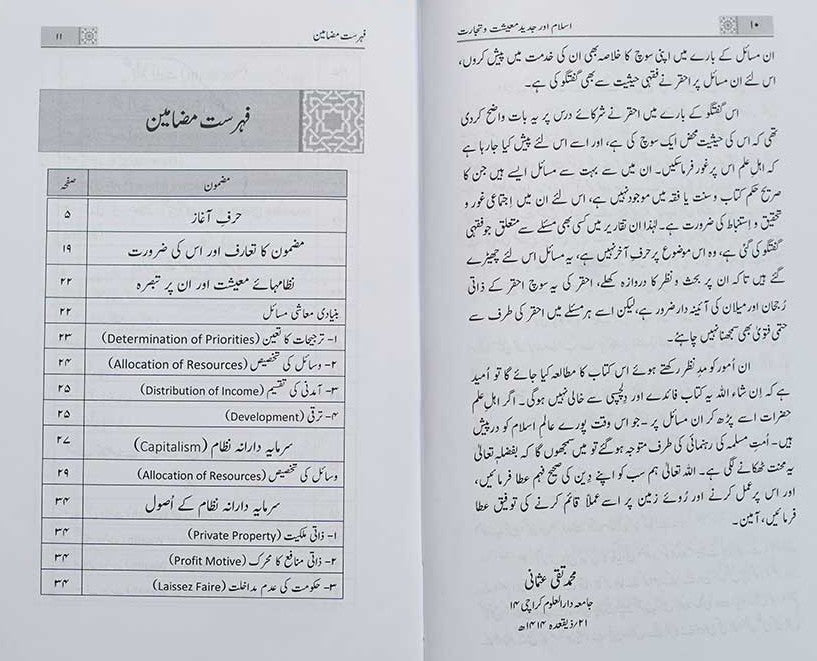 ۱۰
اسلام اور جدید معیشت و تجارت
ان مسائل کے بارے میں اپنی سوچ کا خلاصہ بھی ان کی خدمت میں پیش کروں،
اس لئے ان مسائل پر احقر نے فقہی حیثیت سے بھی گفتگو کی ہے۔
اس گفتگو کے بارے میں احقر نے شرکائے درس پر یہ بات واضح کردی
تھی کہ اس کی حیثیت محض ایک سوچ کی ہے، اور اسے اس لئے پیش کیا جارہا ہے
کہ اہلِ علم اس پر غور فرماسکیں۔ ان میں سے بہت سے مسائل ایسے ہیں جن کا
صریح حکم کتاب و سنت یا فقہ میں موجود نہیں ہے، اس لئے ان میں اِجتماعی غور و
تحقیق و اِستنباط کی ضرورت ہے۔ لہٰذا ان تقاریر میں کسی بھی مسئلے سے متعلق جو فقہی
گفتگو کی گئی ہے، وہ اس موضوع پر حرفِ آخر نہیں ہے، یہ مسائل اس لئے چھیڑے
گئے ہیں تاکہ ان پر بحث و نظر کا دروازہ کھلے، احقر کی یہ سوچ احقر کے ذاتی
رُجحان اور میلان کی آئینہ دار ضرور ہے، لیکن اسے ہر مسئلے میں احقر کی طرف سے
حتمی فتویٰ بھی سمجھنا نہیں چاہئے۔
ان اُمور کو مدِ نظر رکھتے ہوئے اس کتاب کا مطالعہ کیا جائے گا تو اُمید
ہے کہ اِن شاء اللہ یہ کتاب فائدے اور دِلچسپی سے خالی نہیں ہوگی۔ اگر اہلِ علم
حضرات اسے پڑھ کر ان مسائل پر - جو اس وقت پورے عالمِ اسلام کو درپیش
ہیں - اُمتِ مسلمہ کی رہنمائی کی طرف متوجہ ہوگئے تو میں سمجھوں گا کہ بفضلہٖ تعالیٰ
یہ محنت ٹھکانے لگی ہے۔ اللہ تعالیٰ ہم سب کو اپنے دِین کی صحیح فہم عطا فرمائیں،
اور اس پر عمل کرنے اور رُوئے زمین پر اسے عملاً قائم کرنے کی توفیق عطا
فرمائیں، آمین۔
محمد تقی عثمانی
جامعہ دارالعلوم کراچی ۱۴
۲۱/ذیقعدہ ۱۴۱۴ھ
فہرست مضامین
۱۱
فہرست مضامین
مضمون صفحہ
حرفِ آغاز ۵
مضمون کا تعارف اور اس کی ضرورت ۱۹
نظامہائے معیشت اور ان پر تبصرہ ۲۲
بنیادی معاشی مسائل ۲۲
۱- ترجیحات کا تعین (Determination of Priorities) ۲۳
۲- وسائل کی تخصیص (Allocation of Resources) ۲۴
۳- آمدنی کی تقسیم (Distribution of Income) ۲۵
۴- ترقی (Development) ۲۵
سرمایہ دارانہ نظام (Capitalism) ۲۷
وسائل کی تخصیص (Allocation of Resources) ۲۹
سرمایہ دارانہ نظام کے اُصول ۳۴
۱- ذاتی ملکیت (Private Property) ۳۴
۲- ذاتی منافع کا محرک (Profit Motive) ۳۴
۳- حکومت کی عدم مداخلت (Laissez Faire) ۳۴